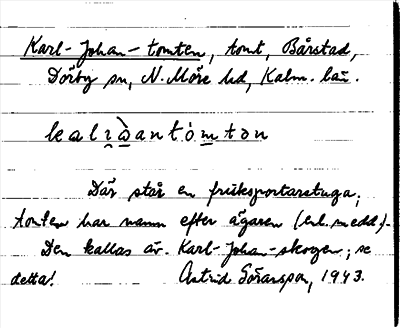 Karl-Johan-tomten, tomt, Bårstad,
Dörby sn, N. Möre hd, Kalm. län.
kalıòantómtən
Där står en friksportarstuga;
tomten har namn efter ägaren (enl. medd.).
Den kallas äv. Karl-Johan-skogen; se
detta! Astrid 1943.